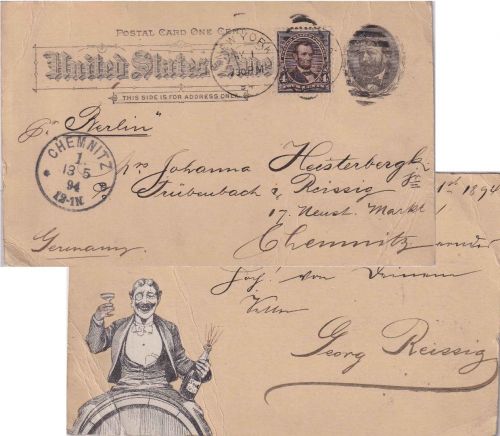 POSTAL CARD ONE CENT
United States Ame
THIS SIDE IS FOR ADDRESS ONLY.
YORK
4 4
pr. "Berlin"
CHEMNITZ
1.
13 5
94
12-1N.
Johanna Heisterbergk
Trübenbach & Reissig
17. Neust. Markt
Chemnitz
Germany
1st 1894
von Deinem
Vetter
Georg Reissig